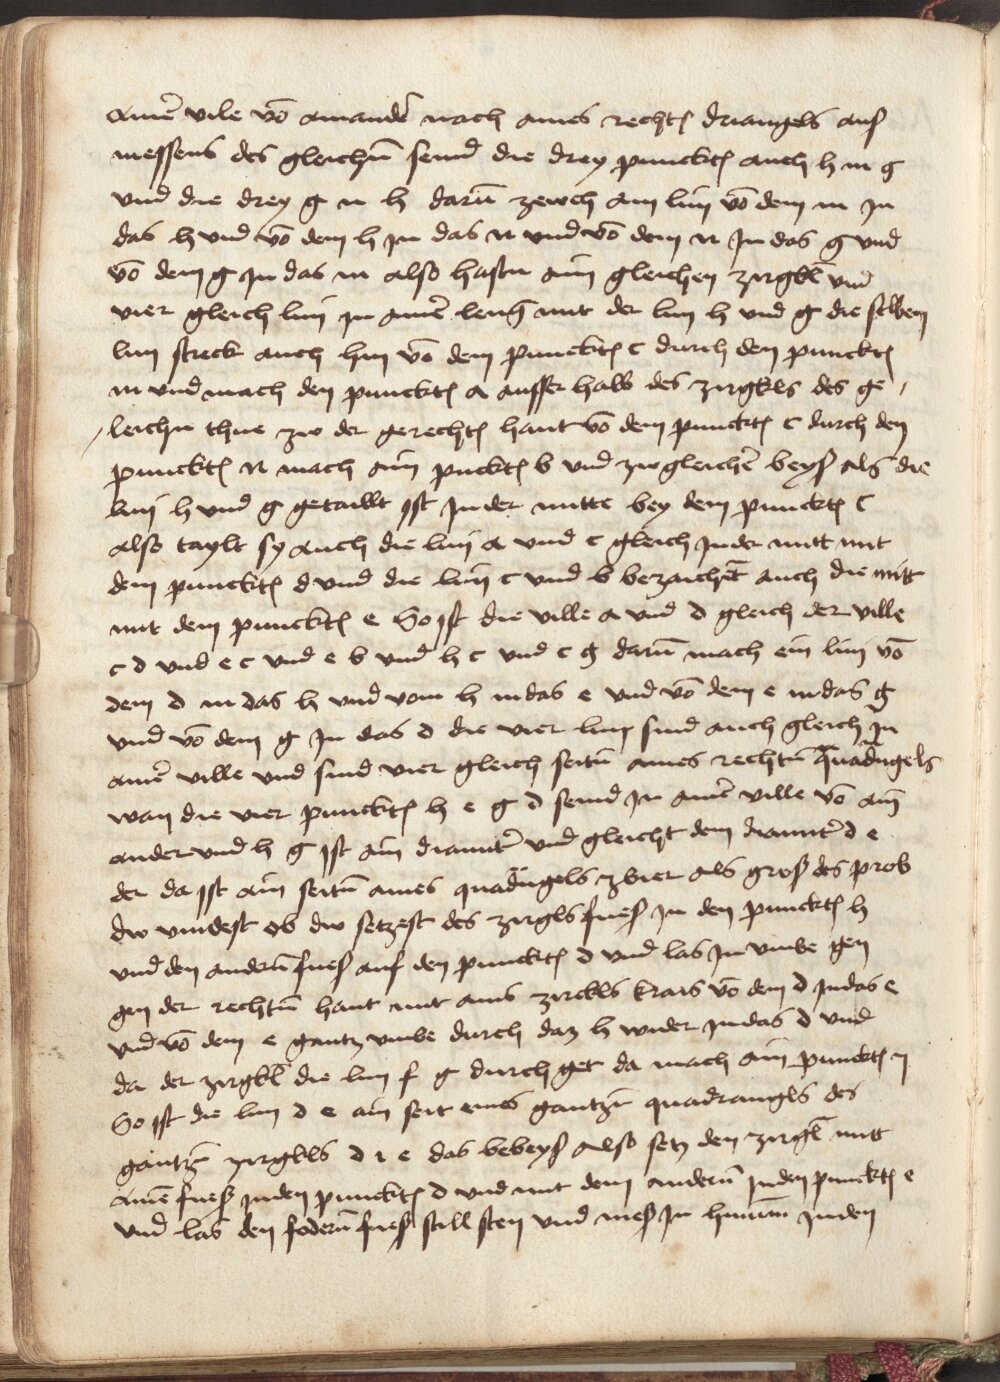 ainer̄ vile vō ainander nach aines rechtē driangels aus
messens des gleichn̄ seind die drey punncktē auch h m g
vnd die drey g n h darum̄ zewch ain linj vō dem m jn
das h vnd vō dem h jn das n vnd vō dem n jn das g vnd
vō dem g jn das m also hastu ain gleichen zirgkl vnd
vier gleich linj jn ainer̄ leng mit der linj h vnd g die selben
linj streck auch hin vō dem punncktē c durch den punncktē
m vnd mach den punncktē a ausser halb des zirgkls des ge /
/ leichn thue zw der gerechtē hant vō dem punncktē c durch den
punncktē n mach ain punncktē b vnd zw gleicher̄ beys als die
linj h vnd g getailt jst jn der mitte bey dem punncktē c
also taylt sy auch die linj a vnd c gleich jn der mitt mit
dem punncktē d vnd die linj c vnd b bezaichēt auch die mitt
mit dem punncktē e So jst die ville a vnd d gleich der ville
c d vnd e c vnd e b vnd h c vnd c g darum̄ mach ein linj vō
dem d in das h vnd vom h in das e vnd vō dem e in das g
vnd vō dem g jn das d die vier linj sind auch gleich jn
ainer̄ ville vnd sind vier gleich seitn̄ aines rechtn̄ quadrangels
wan die vier punncktē h e g d seind jn ainer̄ ville vō ain
ander vnd h g jst ain diameter̄ vnd gleicht dem diameter̄ d e
der da jst ain seitn̄ aines quadrangels zbier als gros des prob
dw vindest ob dw setzest des zirgkls fues jn den punncktē h
vnd den andern̄ fues auf den punncktē d vnd las jn vmbe gen
gen der rechtn̄ hant mit ains zirckls krais vō dem d jn das e
vnd vō dem e gantz vmbe durch daz h wider jn das d vnd
da der zirgkl die linj f g durch get da mach ain punncktē j
So jst die linj d e ain seit eines gantzn̄ quadrangls des
gantzn̄ zirgkls d i e das bebeys Also setz den zirgkl mitt
ainē fues jn den punncktē d vnd mit dem andern̄ jn den punncktē e
vnd las den fodern̄ fues still sten vnd mes jn hinum̄ jn den